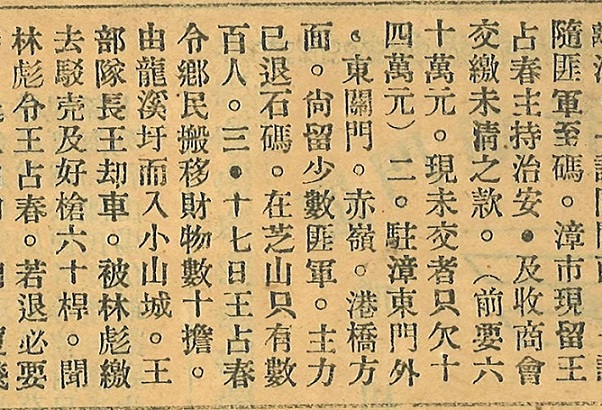 隨匪軍至碼。漳市現留王
占春主持治安。及收商會
交繳未清之款。（前要六
十萬元。現未交者只欠十
四萬元）二。駐漳東門外
。東關門。赤嶺。港橋方
面。尙留少數匪軍。主力
已退石碼。在芝山只有數
百人。三。十七日王占春
令鄉民搬移財物數十擔。
由龍溪圩而入小山城。王
部隊長王却車。被林彪繳
去駁壳及好槍六十桿。聞
林彪令王占春。若退必要